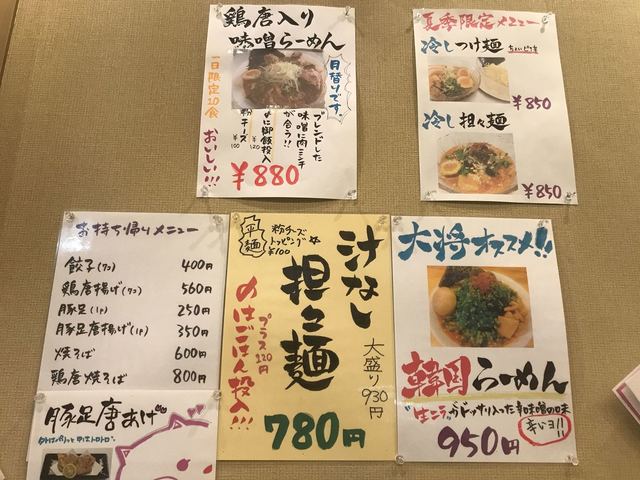 鶏唐入り
味噌らーめん
月替りです。
一日限定20食
おいしい!!!
ブレンドした
味噌に肉ミンチ
が合う!!
〆に御飯投入
¥120
粉チーズ
¥100
¥880
夏季限定メニュー
冷しつけ麺
¥850
冷し担々麺
¥850
お持ち帰りメニュー
餃子(7コ) 400円
鶏唐揚げ(7コ) 560円
豚足(1P) 250円
豚足唐揚げ(1P) 350円
焼そば 600円
鶏唐焼そば 800円
豚足唐あげ
平麺
粉チーズ
トッピング
¥100
汁なし
担々麺
大盛り930円
プラス120円
〆はごはん投入!!!
780円
大将オススメ!!
韓国らーめん
"生ニラ"がどっサリ入った辛味噌の味
辛いヨ!!
950円